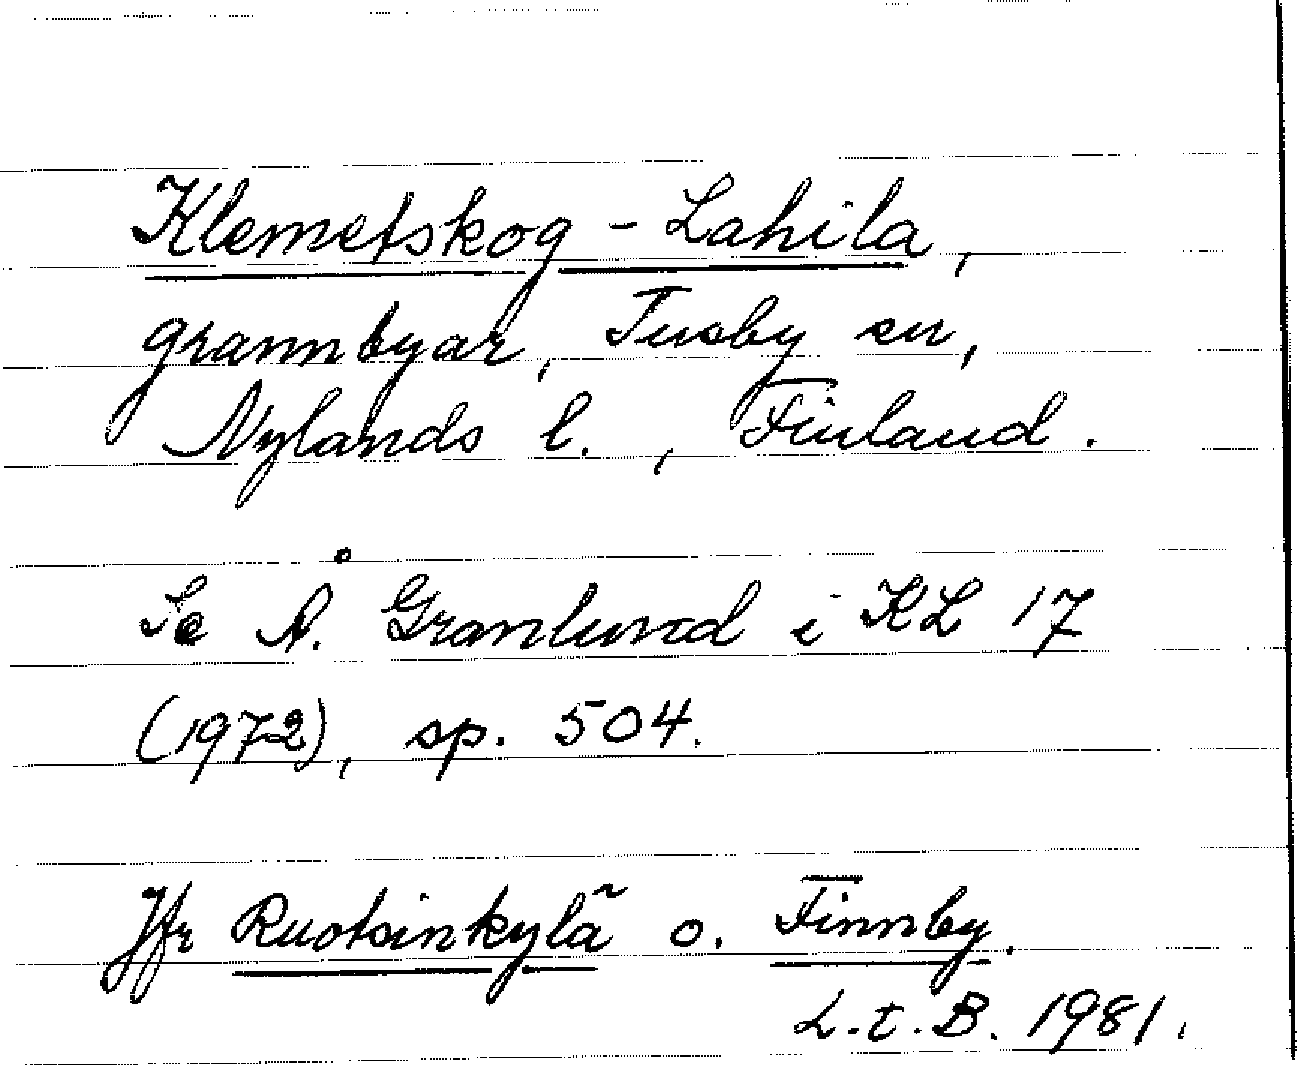 Klemetskog - Lahila,
grannbyar, Tusby sn,
Nylands l., Finland.
Se Å. Granlund i KL 17
(1972), sp. 504.
Jfr Ruotsinkylä o. Finnby.
L.t.B. 1981.